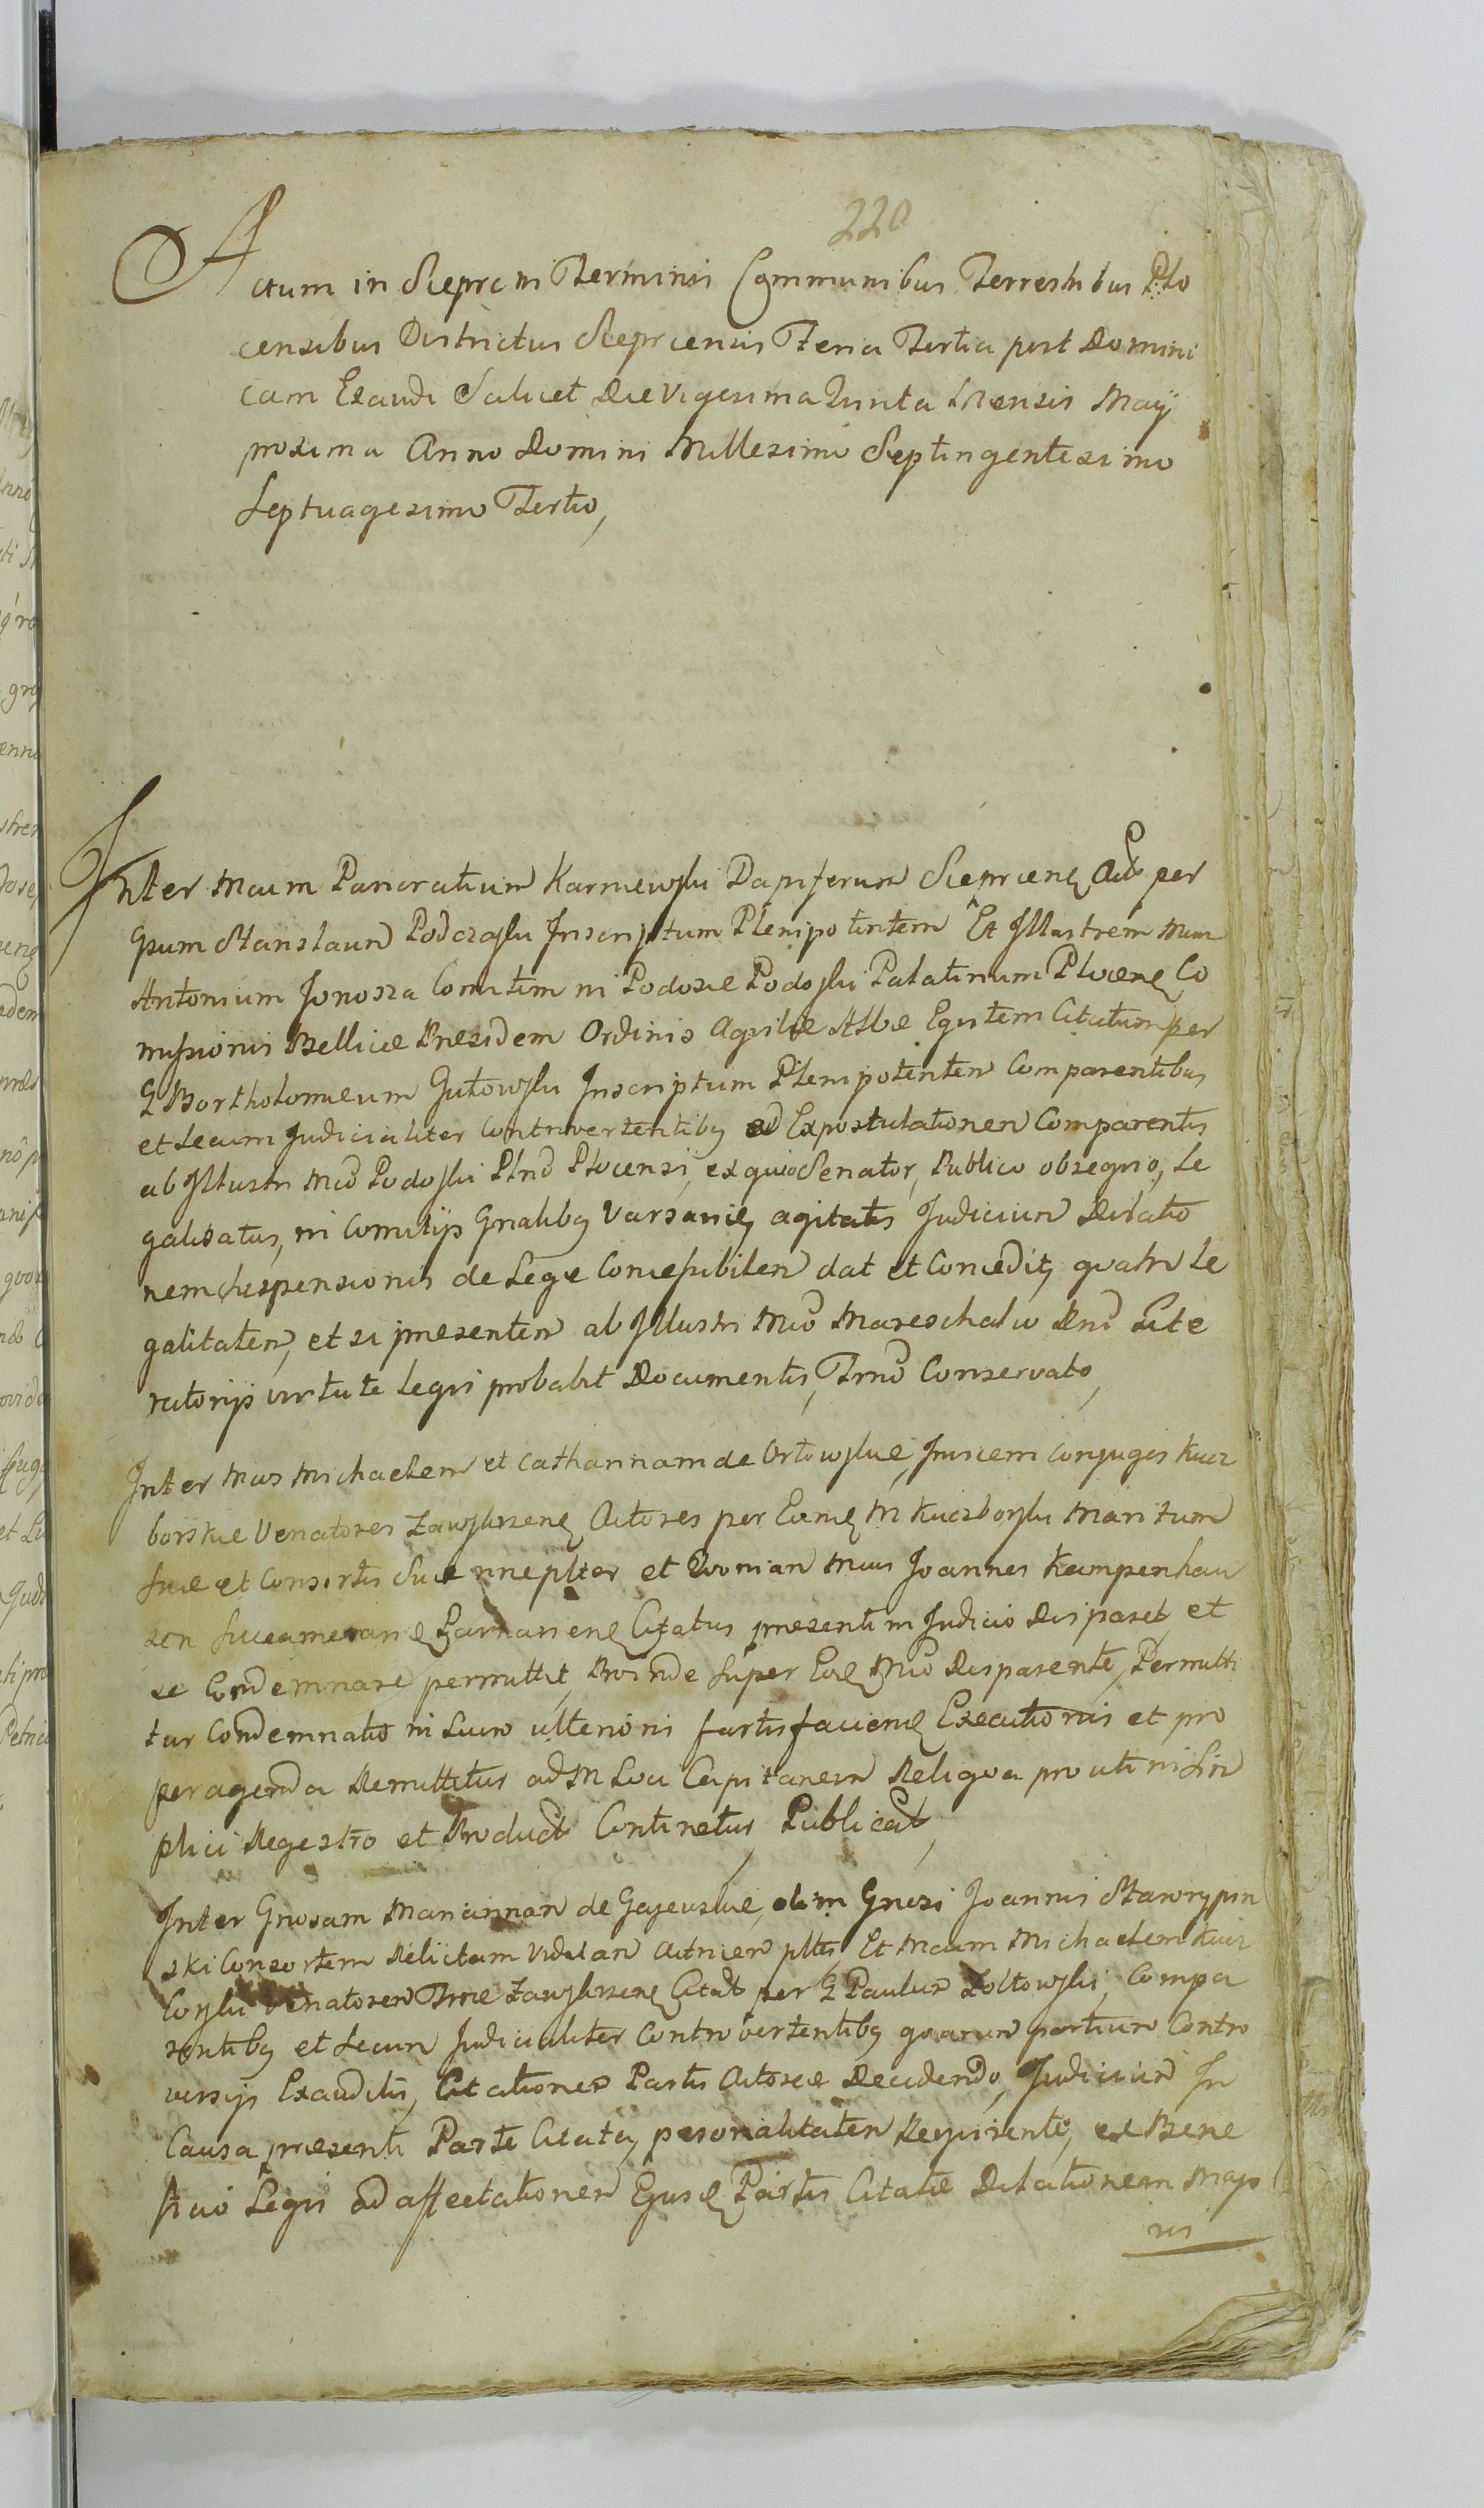 220
Actum in Sieprc in Terminis Communibus Terrestribus Plo
censibus Districtus Sieprcensis Feria Tertia post Domini
cam Exaudi Scilicet Die Vigesima Quinta Mensis Maÿ
proxima Anno Domini Millesimo Septingentesimo
Septuagesimo Tertio,
Inter Mcum Pancratium Karniewski Dapiferum Sieprcens Act per
Gsum Stanislaum Podczaski Inscriptum Plenipotentem Et Illustrem Mcum
Antonium Jonosza Comitem in Podosie Podoski Palatinum Plocens Co
missionis Bellicæ Præsidem Ordinis Aquilæ Albæ Equitem Citatum per
G Bartholomæum Gutowski Inscriptum Plenipotentem Comparentibus
et Secum Judicialiter Controvertentibq ad Expostulationem Comparentis
ab Illustri Mco Podoski Plno Plocensi, ex quo Senator, Publico obsequio, Le
galisatus, in Comitijs Gnalibq Varsaviæ agitatis Judicium Dilatio
nem Suspensionis de Lege Concessibilem dat et Concedit, quatn Le
galitatem, et si præsentem ab Illustri Mco Mareschalco Dno Lite
ratorijs virtute Legis probabit Documentis, Trno Conservato,
Inter Mcos Michaelem et Catharinam de Orłowskie, Invicem Conjuges Kucz
borskie Venatores Zawskrzens Actores per Eundem M Kuczborski Maritum
suæ et Consortis Suæ nneplter et Quoniam Mcus Joannes Kampenhau
sen Succamerarie Parnaviens Citatus præsenti in Judicio Disparet, et
se Condemnare permittit, Proinde Super Eod Mco Disparente, Permitti
tur Condemnatio in Lucro ulterioris fortis faciend Executionis et pro
peragenda Remittitur ad M Loci Capitaneum Reliqua prouti in Sim
plici Regestro et Product Continetur, Publicat,
Inter Gnosam Mariannam de Gajewskie, olim Gnosi Joannis Skarzypin
ski Consortem Relictam Viduam Actricem pltr, Et Mcum Michaelem Kucz
borski Venatorem Træ Zawskrzens Citat per G Paulum Zołtowski, Compa
rentibq et Secum Judicialiter Controvertentibq quarum partium Contro
versijs Exauditis, Citationes Partis Actoreæ Decidendo, Judicium In
Causa præsenti Parte Citata, personalitatem Requirente, ex Bene
ficio Legis ad affectationem Ejusd Partis Citatæ Dilationem Majo
ris